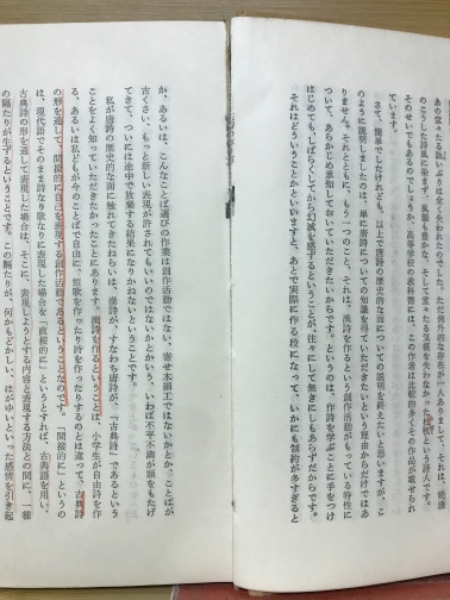 あの堂々たる詠いぶりは全く失われたのでした。ただ例外的な存在が一人ありまして、それは、晩唐
のこうした詩風に染まず、風韻も豊かな、そして堂々たる気概を失わなかった杜牧という詩人です。
そのせいでもあるのでしょうか、高等学校の教科書には、この作者は比較的多くその作品が載せられ
ています。
さて、簡単でしたけれども、以上で唐詩の歴史的な面についての説明を終えたいと思いますが、こ
のように説明しましたのは、単に唐詩についての知識を得ていただきたいという理由からだけではあ
りません。それとともに、もう一つのこと、それは、漢詩を作るという創作活動がもっている特性に
ついて、あらかじめ承知しておいていただきたいからです。というのは、作詩を学ぶことに手をつけ
はじめても、しばらくしてから幻滅を感ずるということが、往々にして無きにしもあらずだからです。
それはどんなことかといいますと、あとで実際に作る段になって、いかにも制約が多すぎると
か、あるいは、こんなことば選びの作業は創作活動ではない、寄せ木細工ではないかとか、ことばが
古くさい、もっと新しい表現が許されてもいいのではないかとかいう、いわば不平不満が頭をもたげ
てきて、ついには途中で放棄する結果になりかねないということです。
私が唐詩の歴史的な面に触れてきたねらいは、漢詩が、すなわち唐詩が、「古典詩」であるという
ことをよく知っていただきたかったことにあります。漢詩を作るということは、小学生が自由詩を作
る、あるいは私どもが今のことばで自由に、短歌を作ったり詩を作ったりするのとは違って、古典詩
の形を通して、間接的に自己を表現する創作活動であるということなのです。「間接的に」というの
は、現代語でそのまま詩なり歌なりに表現した場合を「直接的に」というとすれば、古典語を用い、
古典詩の形を通して表現した場合は、そこに、表現しようとする内容と表現する方法との間に、一種
の隔たりが生ずるということです。この隔たりが、何かもどかしい、はがゆいといった感情を引き起